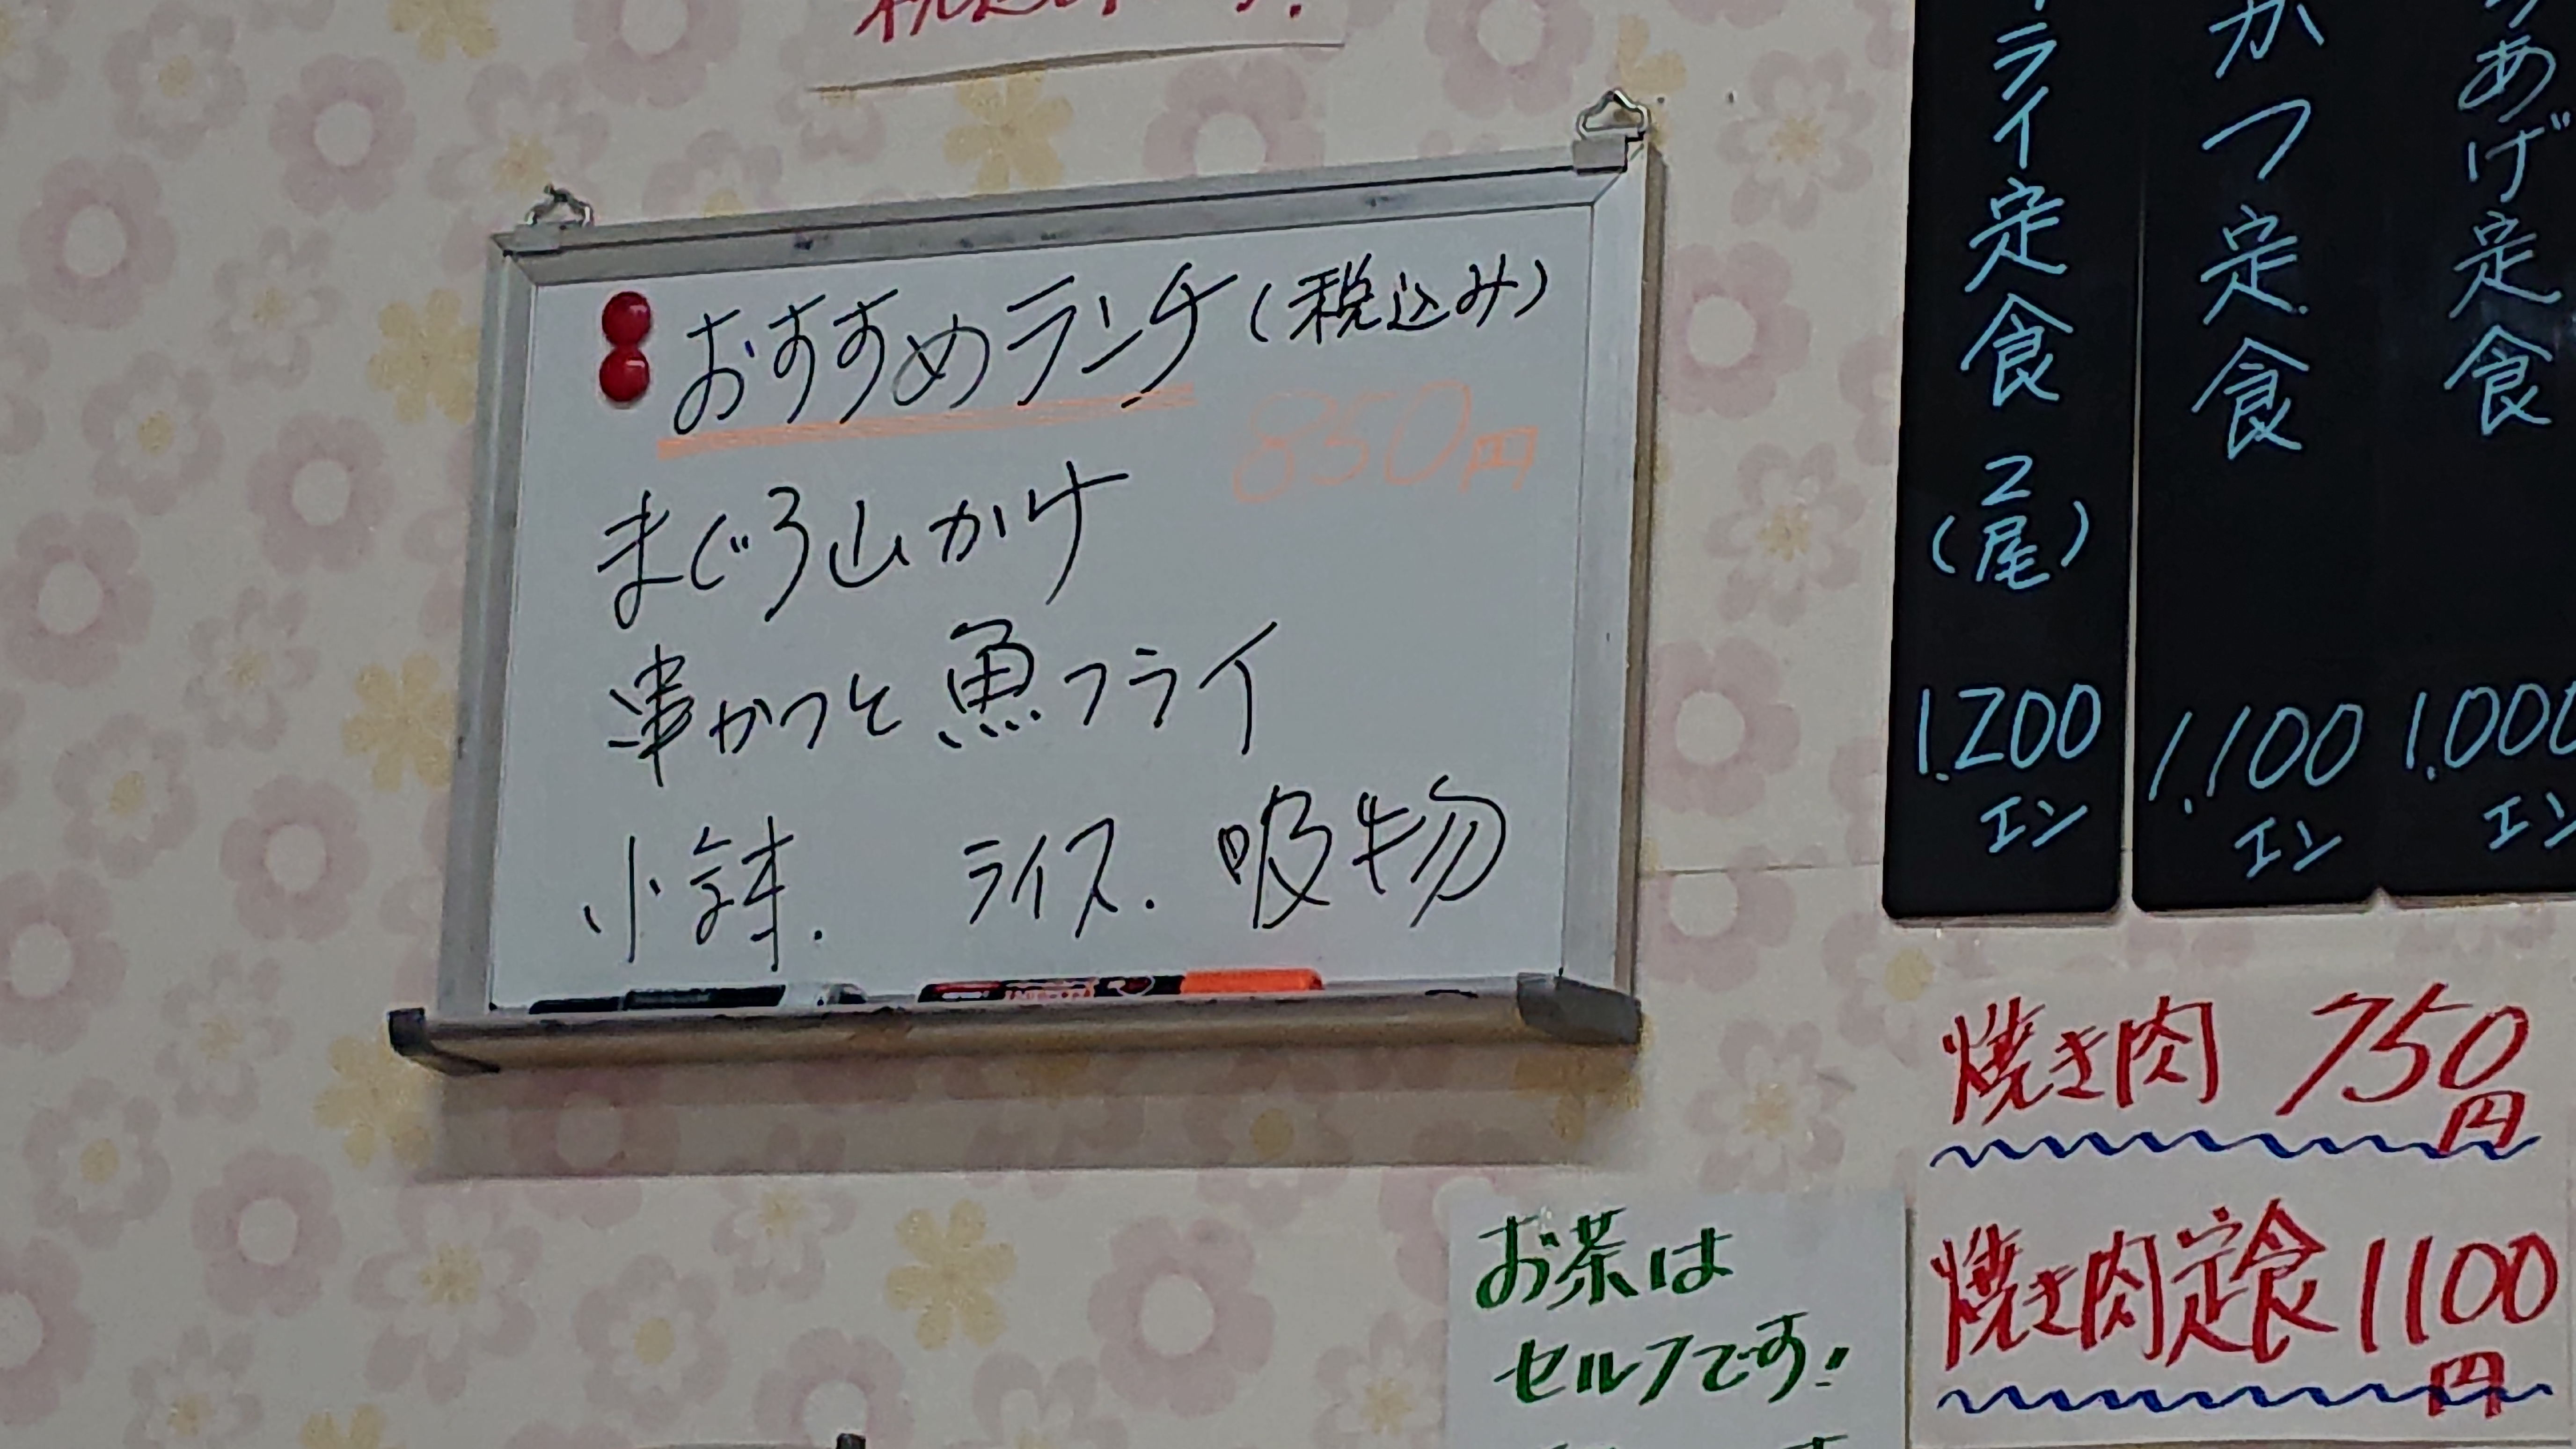 おすすめランチ(税込み)
850円
まぐろ山かけ
串かつと魚フライ
小鉢. ライス. 吸物
あげ定食
1.000
エン
かつ定食
1.100
エン
ライ定食
(2尾)
1.200
エン
焼き肉 750円
焼き肉定食 1100円
お茶は
セルフです!